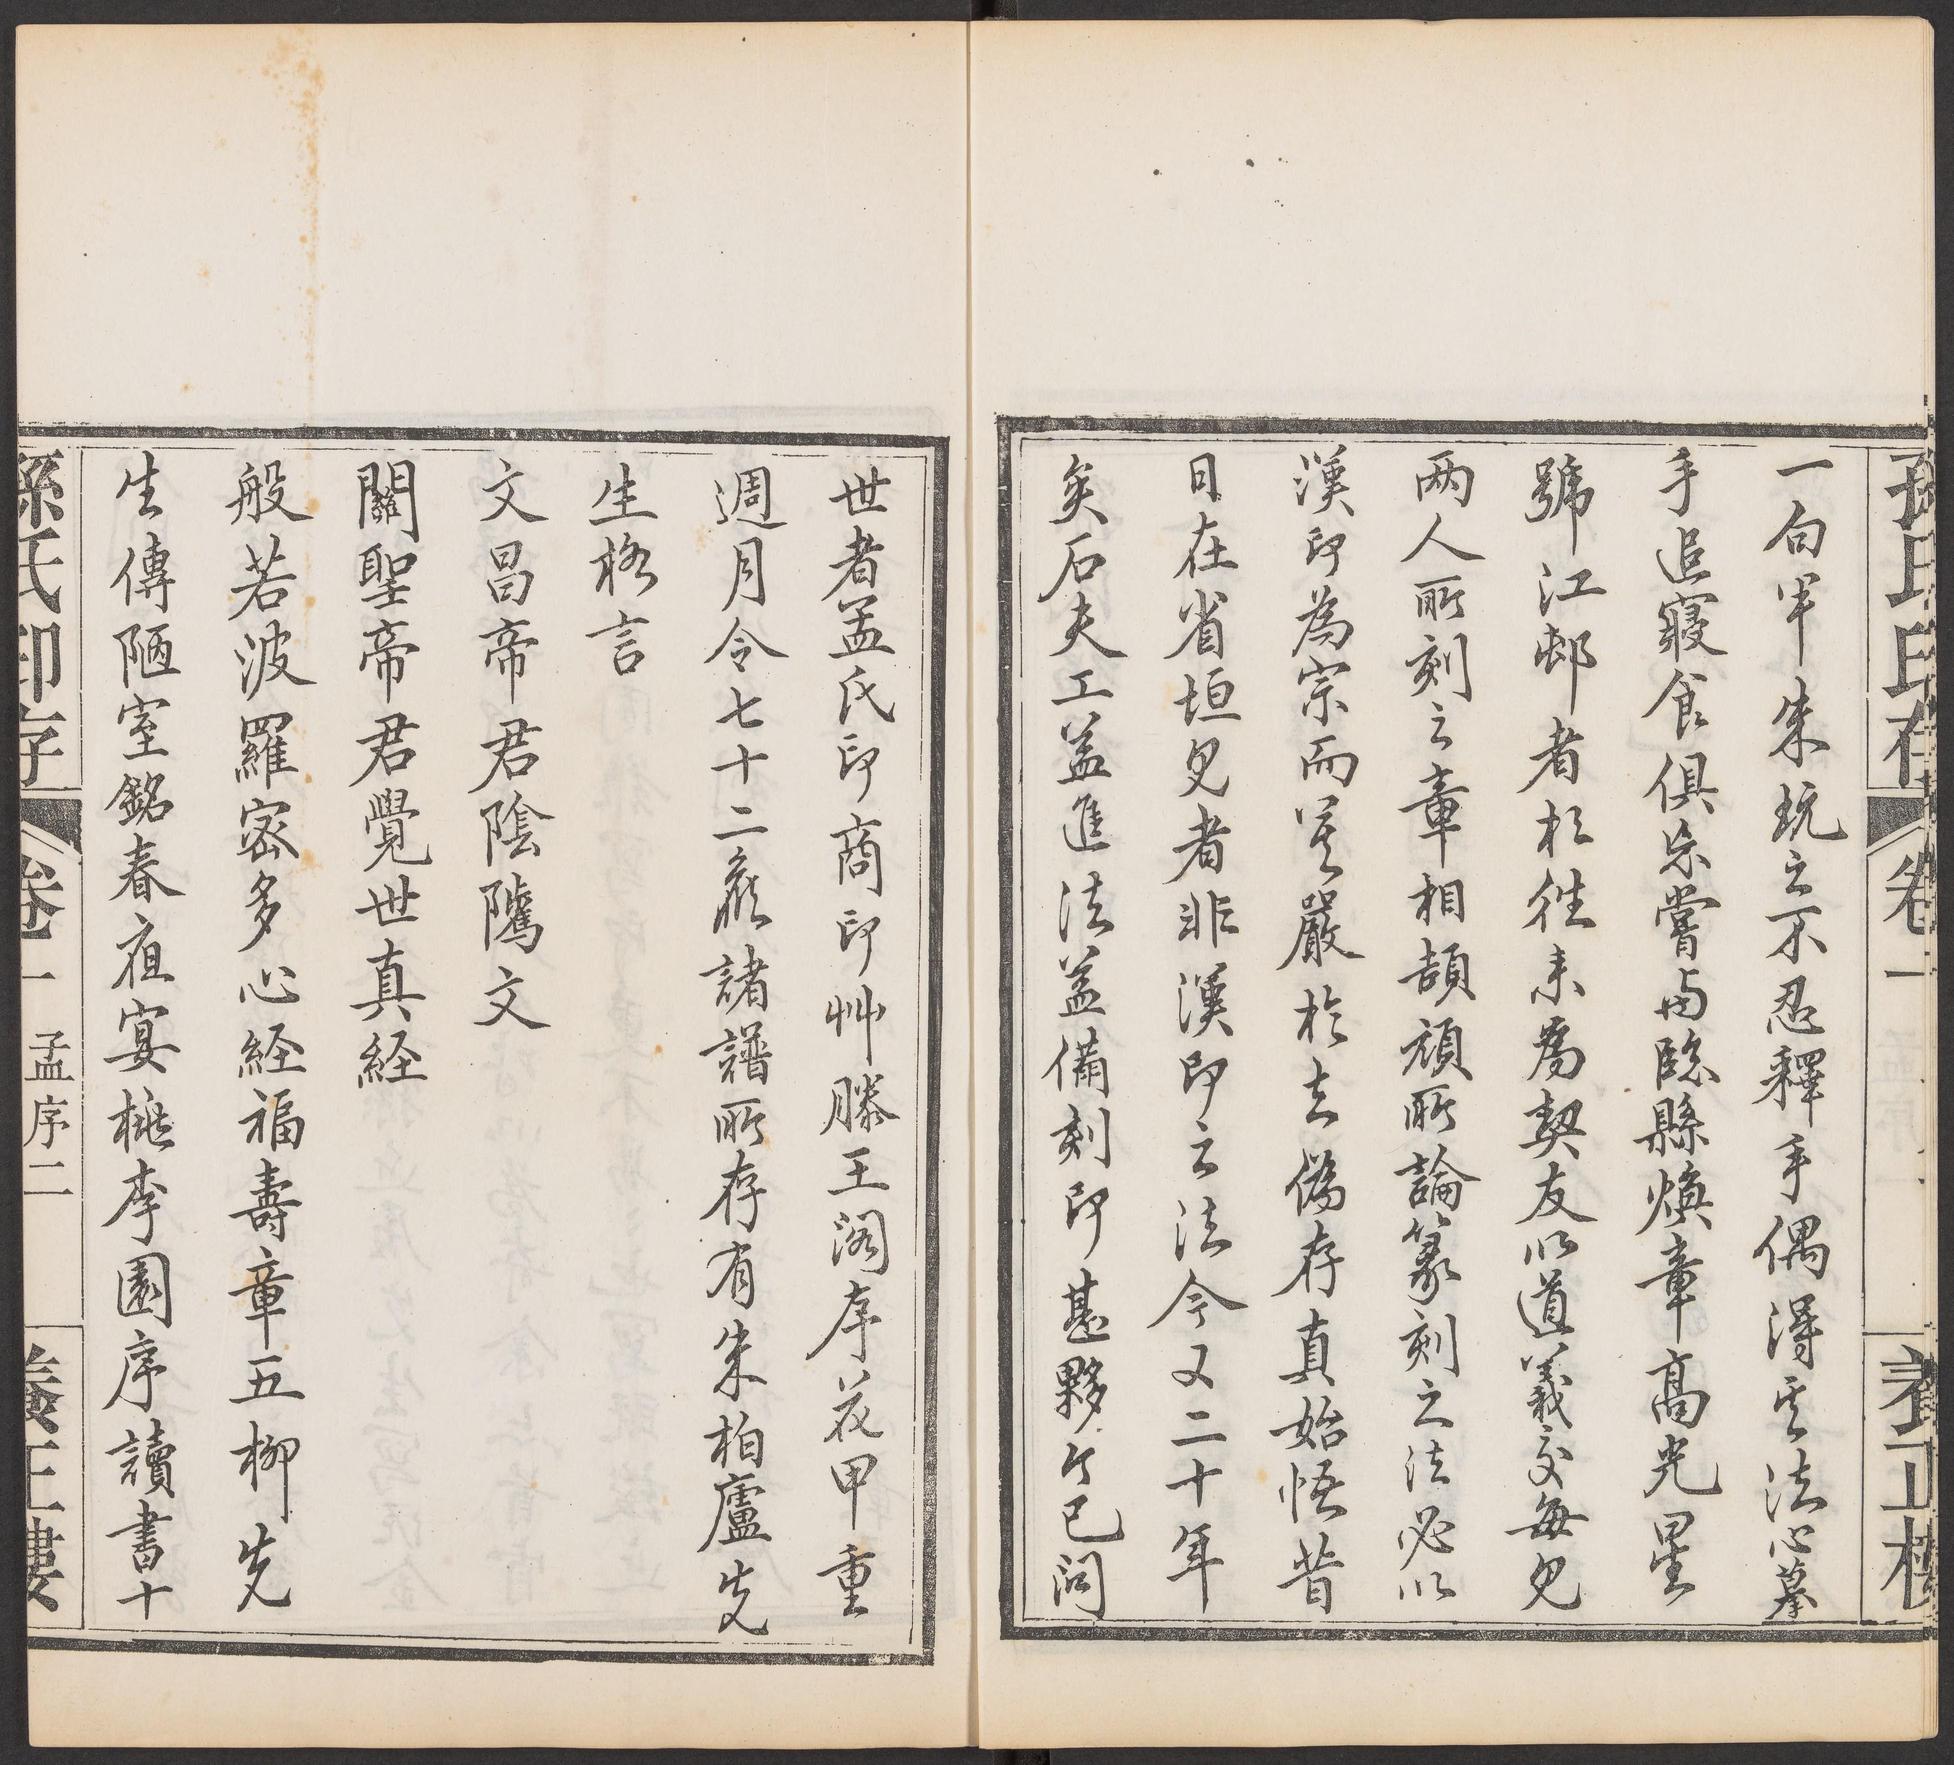 孫氏印存
卷一
養正樓
一句半朱玩之不忍釋手偶得其法心摹
手追寢食俱忘嘗与臨縣煥章高光星
號江邨者於徃来為契友以道義交每見
兩人所刻之章相頡頏所論篆刻之法必以
漢印為宗而其嚴於去偽存真始悟昔
日在省垣見者非漢印之法今又二十年
矣石夫工益進法益備刻印甚夥今已問
世者孟氏印商印艸滕王閣序花甲重
週月令七十二候諸譜所存有朱柏廬先
生格言
文昌帝君陰隲文
關聖帝君覺世真経
般若波羅密多心経福壽章五柳先
生傳陋室銘春夜宴桃李園序讀書十
孫氏印存
卷一
孟序二
養正樓